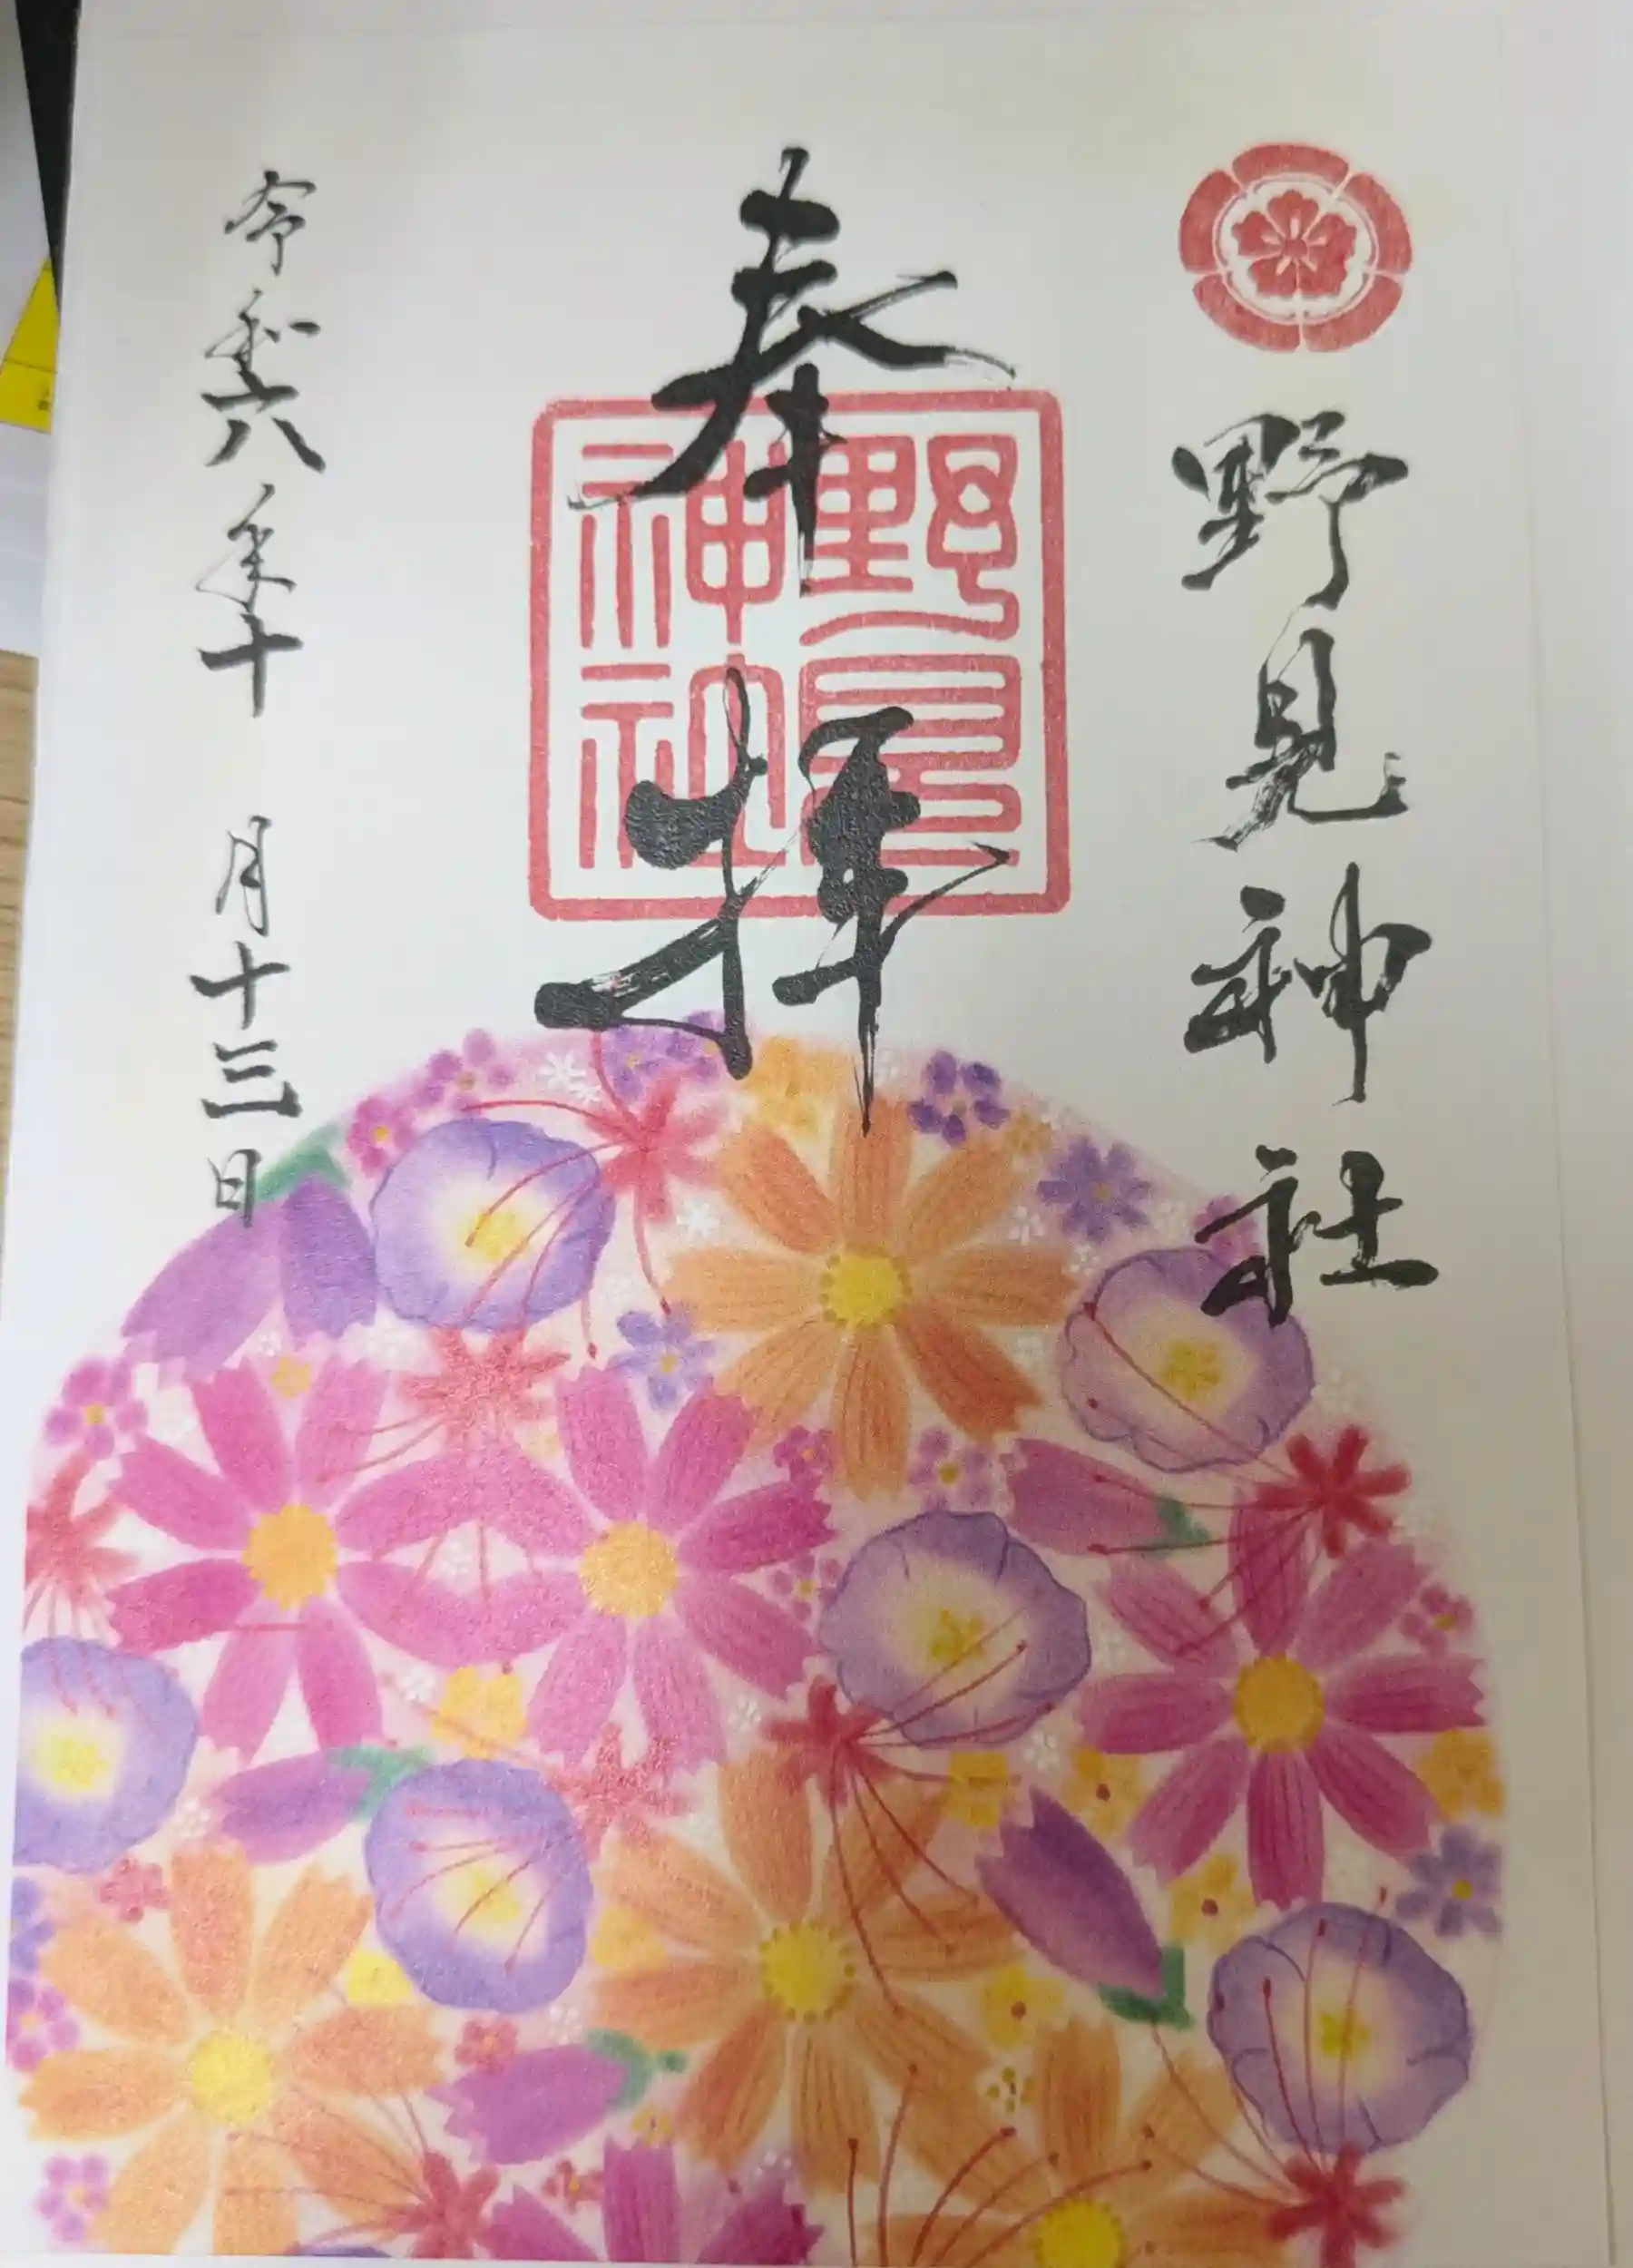 野見神社
奉拝
野見
神社
令和六年十月十三日